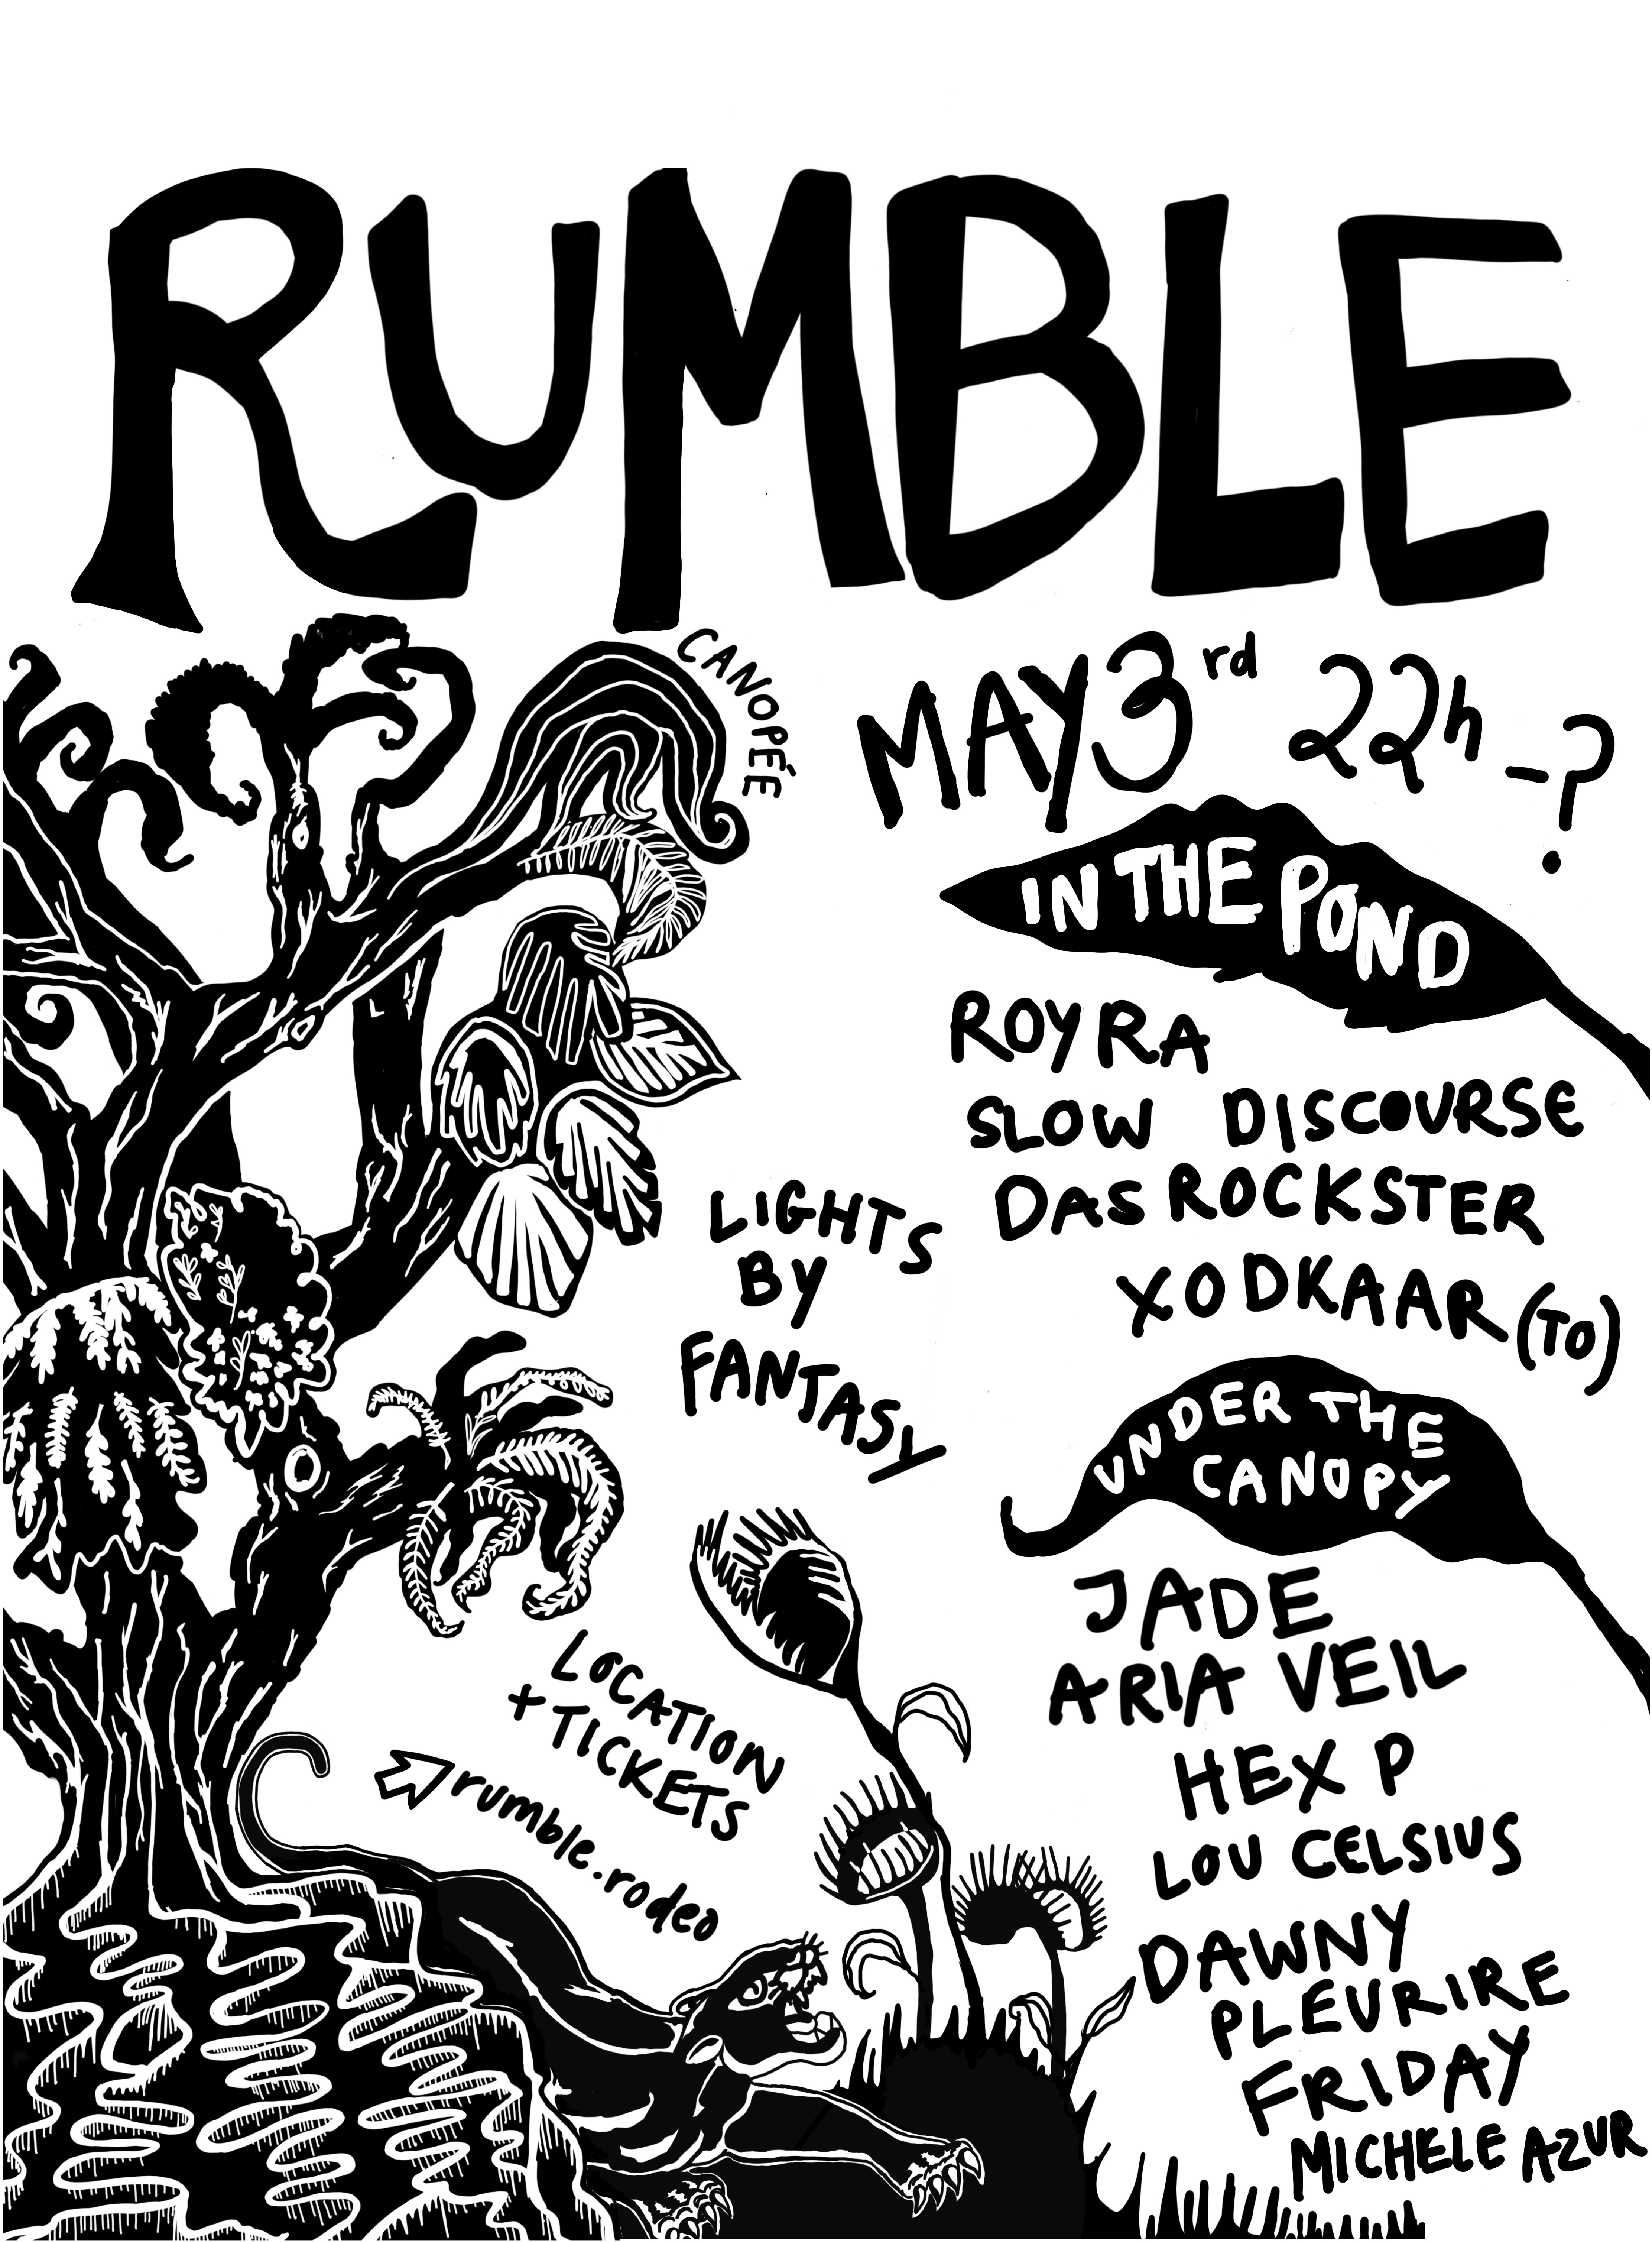 RUMBLE
CANOPÉE
MAY 3rd 22h -?
IN THE POND
ROYRA
SLOW DISCOURSE
DAS ROCKSTER
XODKAAR (TO)
LIGHTS
BY
FANTASY
UNDER THE
CANOPY
JADE
ARIA VEIL
HEX P
LOU CELSIUS
DAWNY
PLEURIRE
FRIDAY
MICHELE AZUR
LOCATION
+TICKETS
rumble.rodeo